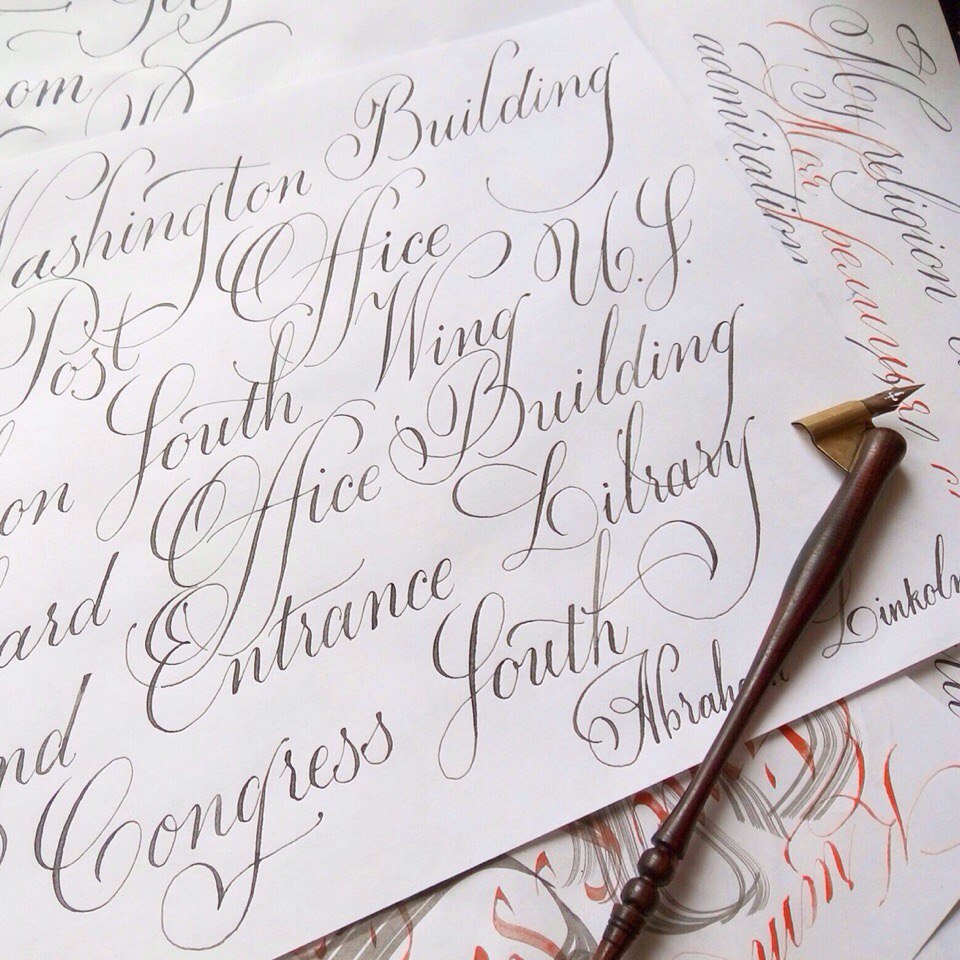 Washington Building
Post Office
on South Wing U.S.
ard Office Building
nd Entrance Library
Congress South
Abraha Linkoln
om
My religion
admiration